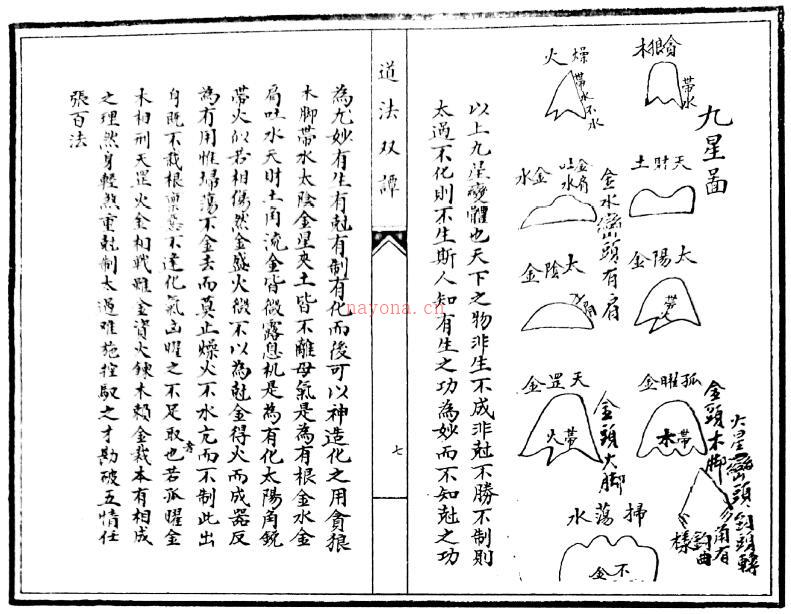 九星圖
貪狼木
帶水
燥火
帶水不水
天財土
金水
金肩吐水
金水巒頭有肩
太陽金
帶火
太陰金
孤曜金
帶木
金頭木脚
天罡金
帶火
金頭火脚
掃蕩水
不金
火星巒頭
鈎曲
樣
以上九星變體也天下之物非生不成非尅不勝不制則
太過不化則不生斯人知有生之功為妙而不知尅之功
道法双譚
七
為尤妙有生有尅有制有化而後可以神造化之用貪狼
木脚帶水太陰金星夾土皆不離母氣是為有根金水金
肩吐水天財土角流金皆微露息机是為有化太陽角銳
帶火似若相傷然金盛火微不以為尅金得火而成器反
為有用惟掃蕩不金去而莫止燥火不水亢而不制此出
身既不栽根稟不達化氣凶曜之不足取也若孤曜金
木相刑天罡火金相戰雖金資火鍊木賴金栽本有相成
之理然身輕煞重尅制太過难施控馭之才勘破五情任
張百法
nayona.cn